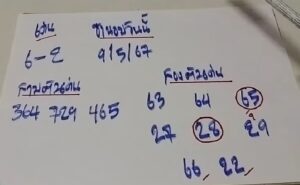 เด่น
6-2
9/5/67
สามตัวเด่น
364 729 465
สองตัวเด่น
63 64 65
27 28 29
66 22